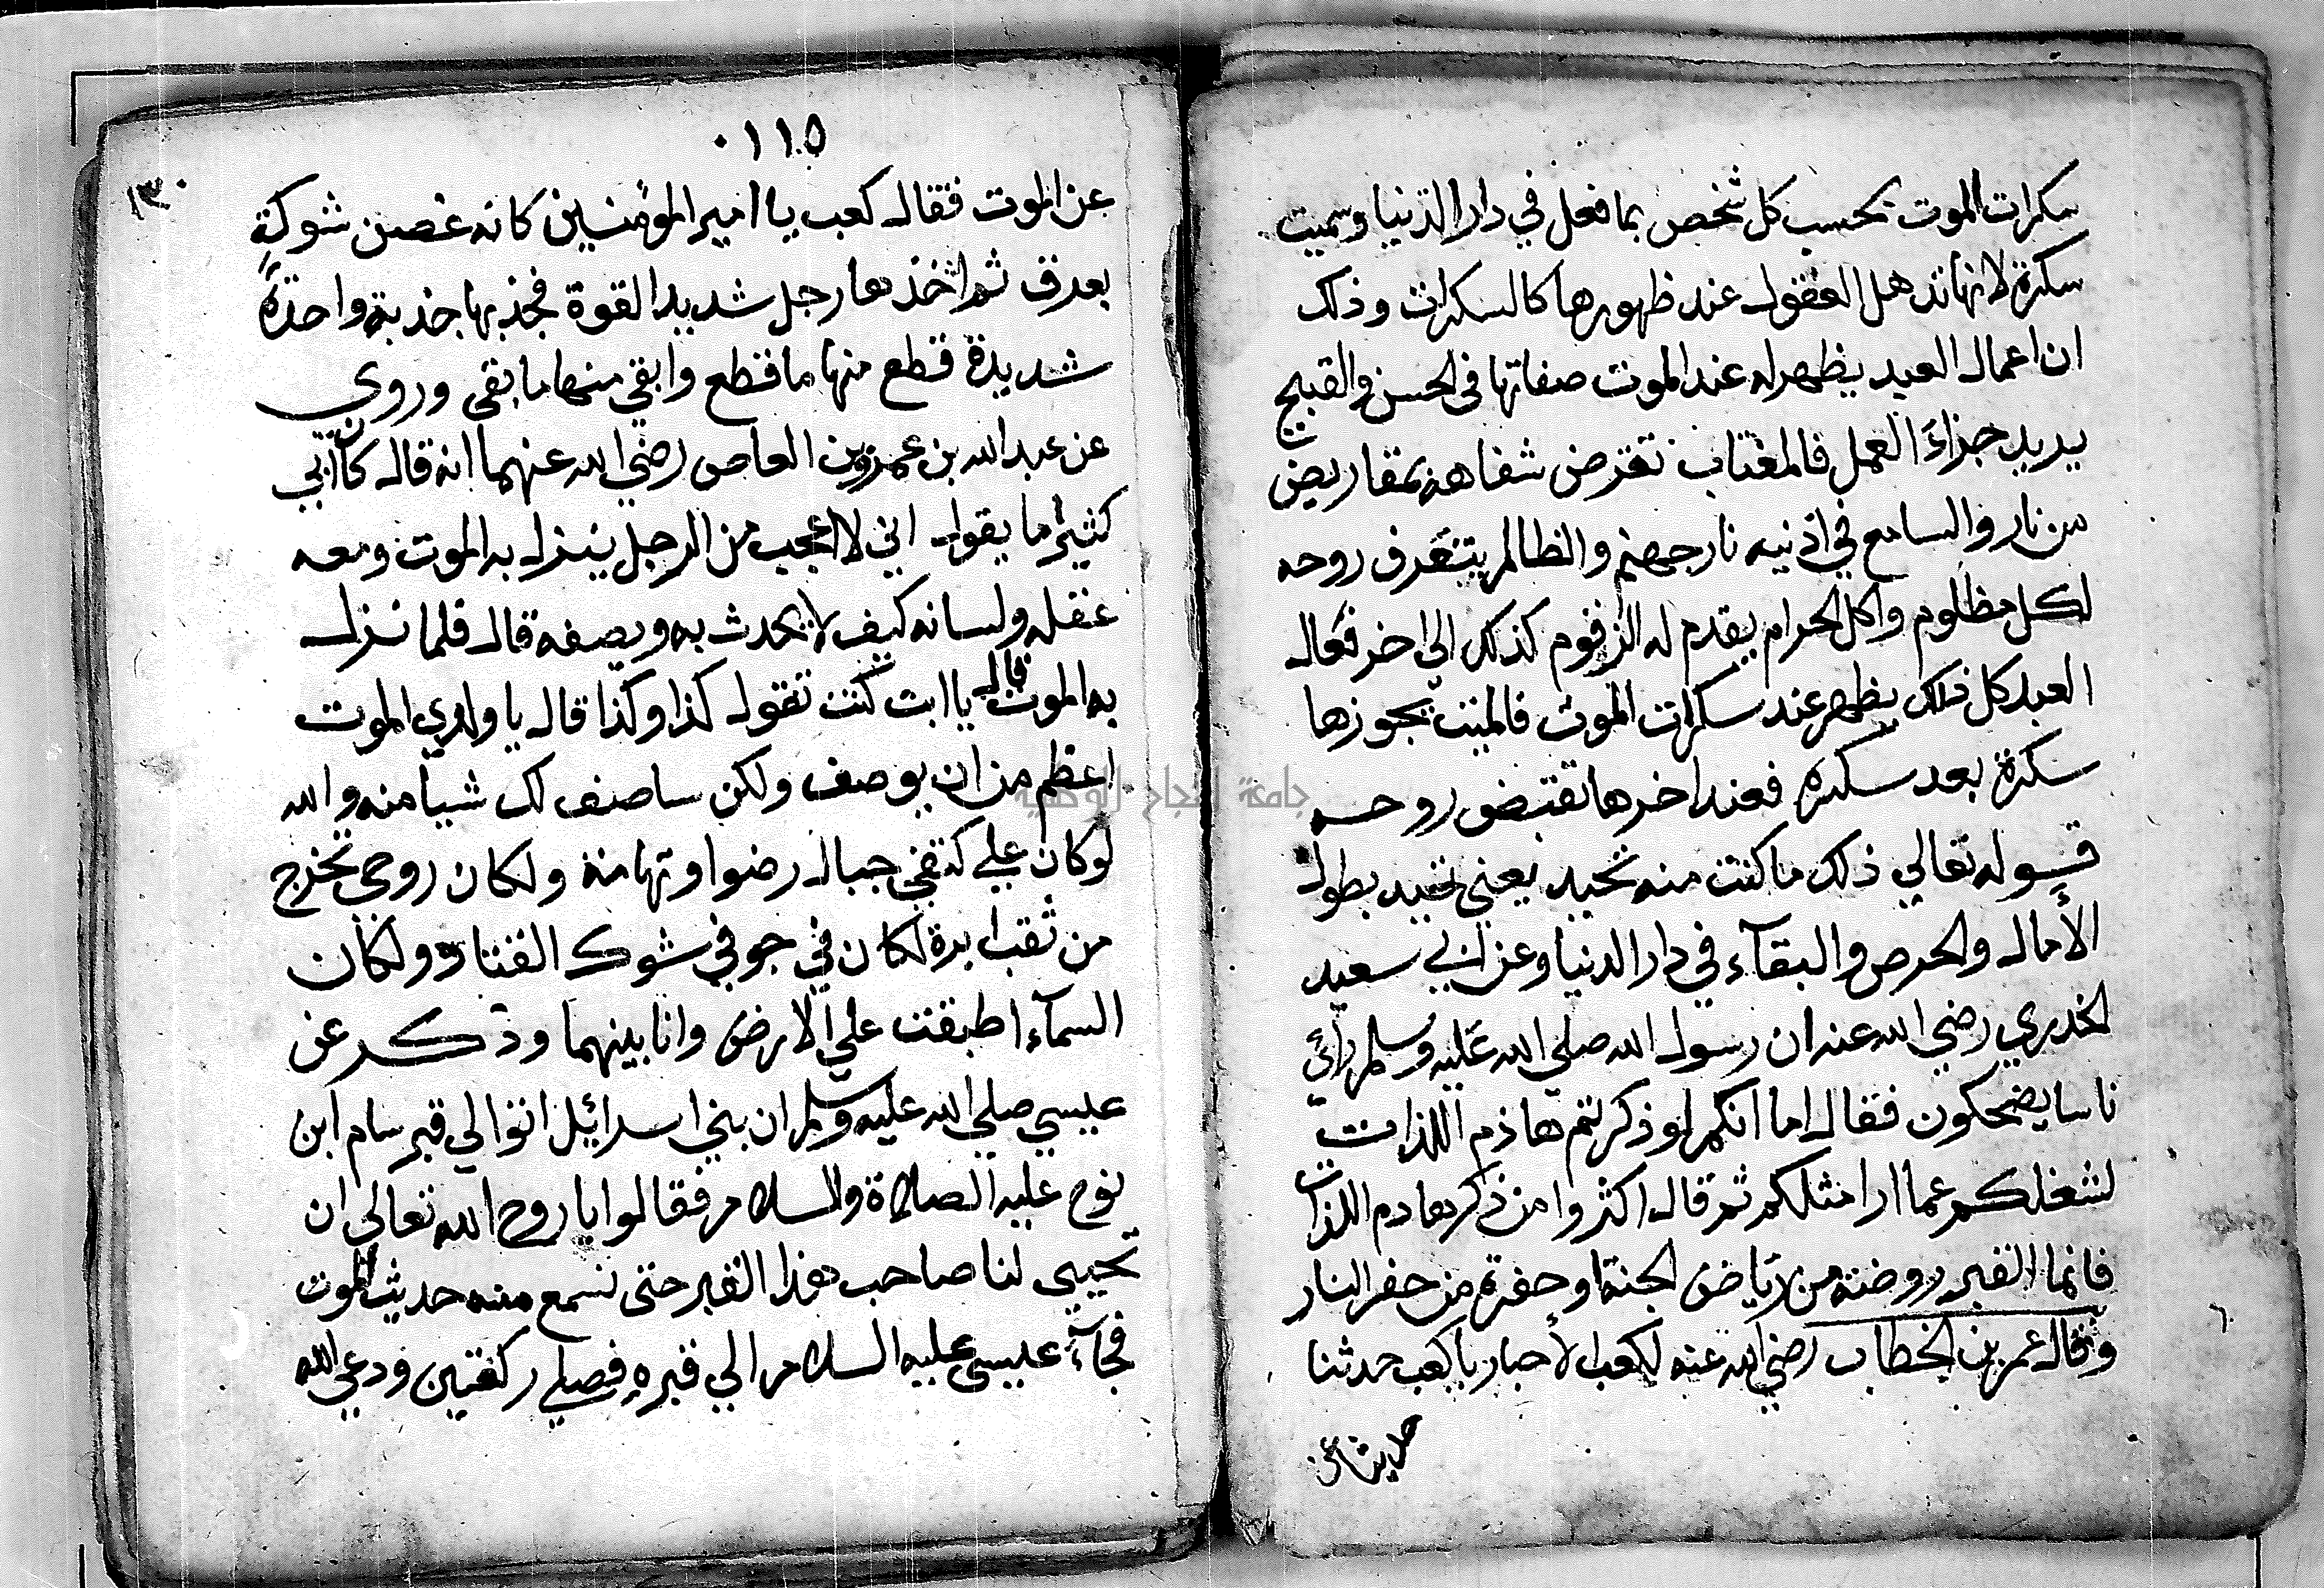 سكرات الموت بحسب كل شخص بما فعل في دار الدنيا وسميت
سكرة لانها تذهل العقول عند ظهورها كالسكرات وذلك
ان اعمال العبد يظهر له عند الموت صفاتها في الحسن والقبيح
يريد جزاء العمل فالمغتاب تقرض شفاهه بمقاريض
من نار والسامع في اذنيه نار جهنم والظالم يتفرق روحه
لكل مظلوم واكل الحرام يقدم له الزقوم كذلك الي اخر فعال
العبد كل ذلك يظهر عند سكرات الموت فالميت يجوزها
سكرة بعد سكرة فعند اخرها تقتبض روحه
قوله تعالي ذلك ما كنت منه تحيد يعني تحيد بطول
الأمال والحرص والبقآء في دار الدنيا وعن ابي سعيد
الخدري رضي الله عنه ان رسول الله صلي الله عليه وسلم رائ
ناسا يضحكون فقال اما انكم لو ذكرتم هاذم اللذات
لشغلكم عما ارا منكم ثم قال اكثروا من ذكر هادم اللذات
فانما القبر روضة من رياض الجنة او حفرة من حفر النار
وقال عمر بن الخطاب رضي الله عنه لكعب الأحبار يا كعب حدثنا
حديثا عن
٠١١٥
١٣٠
عن الموت فقال كعب يا امير المؤمنين كانه غصن شوكةٍ
بعرق ثم اخذها رجل شديد القوة فجذبها جذبة واحدةً
شديدة قطع منها ما قطع وابقي منها ما بقى وروي
عن عبد الله بن عمرو بن العاص رضي الله عنهما انه قال كان ابي
كثيرًا ما يقول اني لا اعجب من الرجل ينزل به الموت ومعه
عقله ولسانه كيف لا يحدث به ويصفه قال فلما نزل
به الموت قال يا ابت كنت تقول كذا وكذا قال يا ولدي الموت
اعظم من ان يوصف ولكن ساصف لك شيا منه والله
لو كان علي كتفي جبال رضوا وتهامة ولكان روحي تخرج
من ثقب ابرة لكان في جوفي شوك القتاد ولكان
السمآء اطبقت علي الارض وانا بينهما وذكر عن
عيسي صلي الله عليه وسلم ان بني اسرائيل اتوا لي قبر سام ابن
نوح عليه الصلاة والسلام فقالوا يا روح الله تعالي ان
تحيي لنا صاحب هذا القبر حتى نسمع منه حديث الموت
فجآء عيسى عليه السلام الي قبره فصلي ركعتين ودعي الله
جامعة النجاح الوطنية